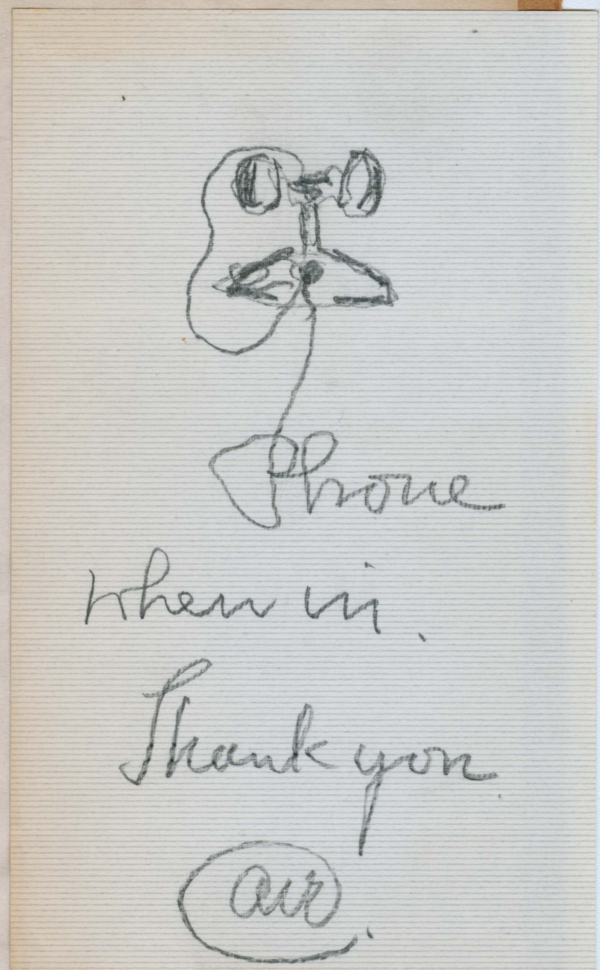 Phone
when in.
Thank you